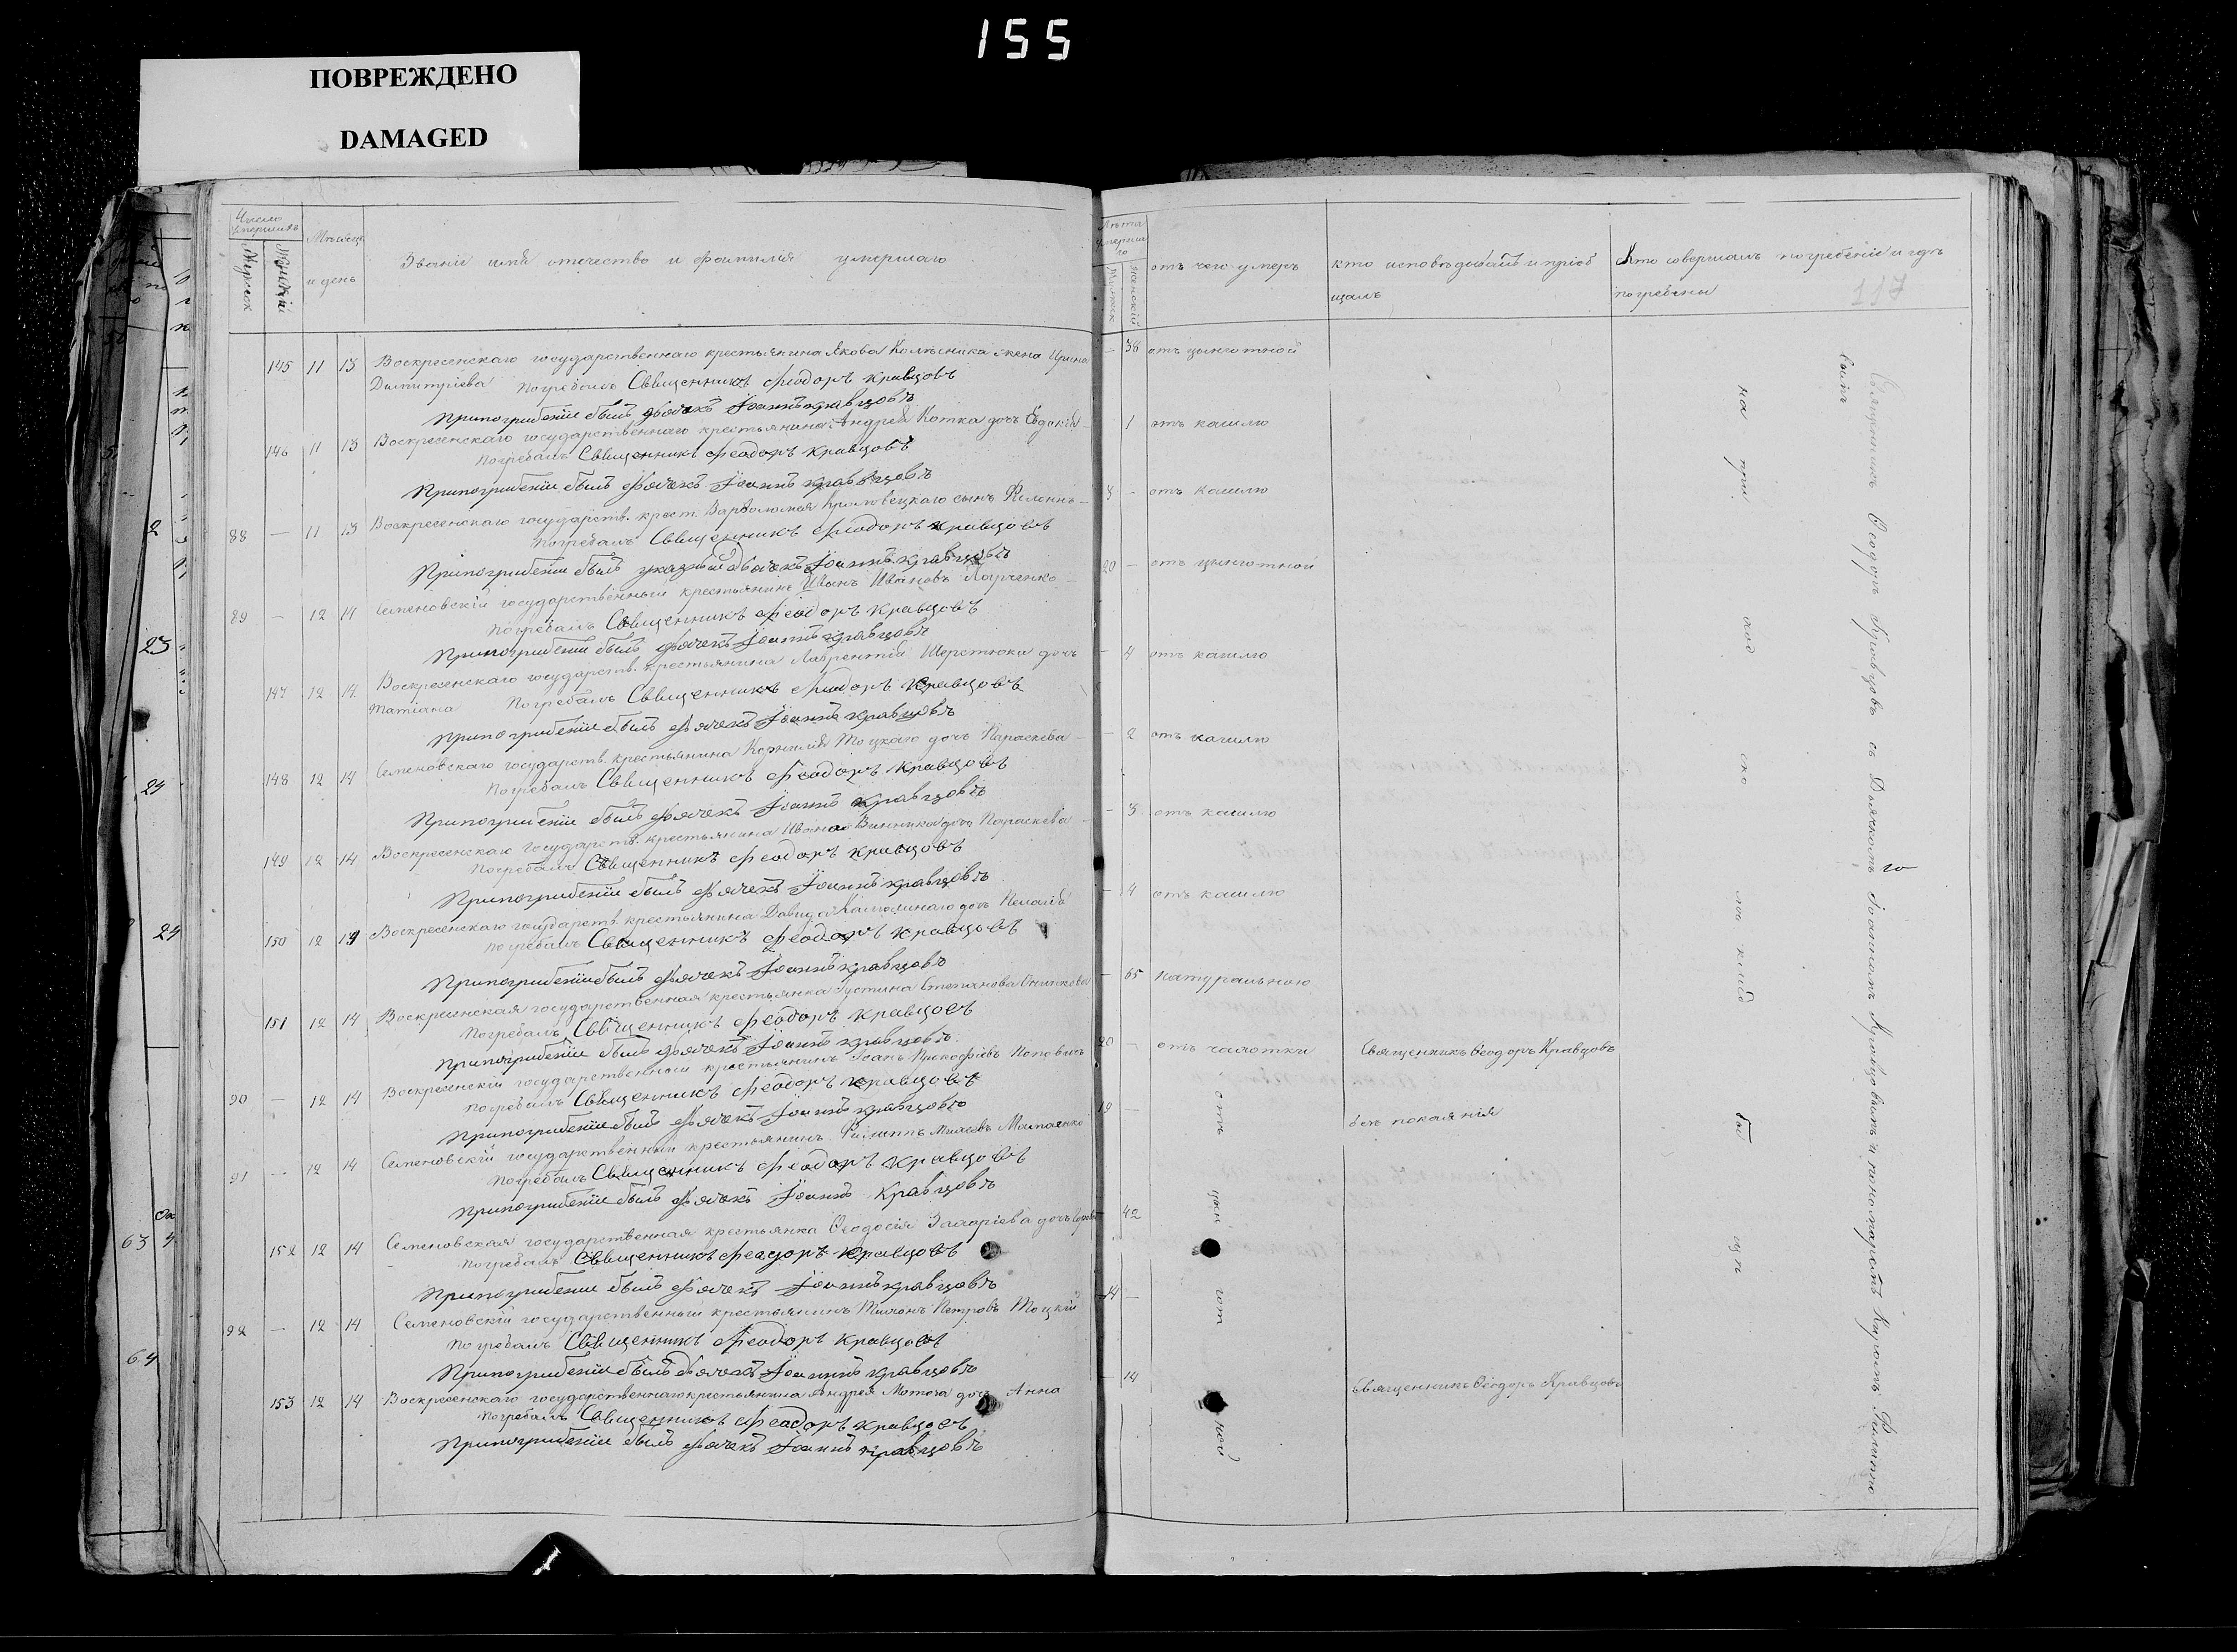 155
ПОВРЕЖДЕНО
DAMAGED
Число умершихъ
Мужеск
Женскій
Мѣсяцъ и день
Званіе имя отечество и фамилія умершаго
145 11 13 Воскресенскаго государственнаго крестьянина Якова Колѣсника жена Ирина
Димитріева Погребалъ Священникъ Феодоръ Кравцовъ
При погребеніи былъ Дьячекъ Іоаннъ Кравцовъ
146 11 13 Воскресенскаго государственнаго крестьянина Андрея Котка дочь Евдокія
Погребалъ Священникъ Феодоръ Кравцовъ
При погребеніи былъ Дьячекъ Іоаннъ Кравцовъ
88 — 11 13 Воскресенскаго государств. крест. Варфоломея сынъ Филиппъ
Погребалъ Священникъ Феодоръ Кравцовъ
При погребеніи былъ указный Дьячекъ Іоаннъ Кравцовъ
89 — 12 14 Семеновскій государственный крестьянинъ Иванъ Ивановъ
Погребалъ Священникъ Феодоръ Кравцовъ
При погребеніи былъ Дьячекъ Іоаннъ Кравцовъ
147 12 14 Воскресенскаго государств. крестьянина Лаврентія Шерстюка дочь
Татіана Погребалъ Священникъ Феодоръ Кравцовъ
При погребеніи былъ Дьячекъ Іоаннъ Кравцовъ
148 12 14 Семеновскаго государств. крестьянина Корнилія Тоцкаго дочь Параскева
Погребалъ Священникъ Феодоръ Кравцовъ
При погребеніи былъ Дьячекъ Іоаннъ Кравцовъ
149 12 14 Воскресенскаго государств. крестьянина Ивана Винника дочь Параскева
Погребалъ Священникъ Феодоръ Кравцовъ
При погребеніи былъ Дьячекъ Іоаннъ Кравцовъ
150 12 14 Воскресенскаго государств. крестьянина Давида дочь Пелагія
Погребалъ Священникъ Феодоръ Кравцовъ
При погребеніи былъ Дьячекъ Іоаннъ Кравцовъ
151 12 14 Воскресенская государственная крестьянка Іустина Степанова
Погребалъ Священникъ Феодоръ Кравцовъ
При погребеніи былъ Дьячекъ Іоаннъ Кравцовъ
90 — 12 14 Воскресенскій государственный крестьянинъ Прокофіевъ Поповичъ
Погребалъ Священникъ Феодоръ Кравцовъ
При погребеніи былъ Дьячекъ Іоаннъ Кравцовъ
91 — 12 14 Семеновскій государственный крестьянинъ Филиппъ
Погребалъ Священникъ Феодоръ Кравцовъ
При погребеніи былъ Дьячекъ Іоаннъ Кравцовъ
152 12 14 Семеновская государственная крестьянка Ѳеодосія Захаріева дочь
Погребалъ Священникъ Феодоръ Кравцовъ
При погребеніи былъ Дьячекъ Іоаннъ Кравцовъ
92 — 12 14 Семеновскій государственный крестьянинъ Петровъ Тоцкій
Погребалъ Священникъ Феодоръ Кравцовъ
При погребеніи былъ Дьячекъ Іоаннъ Кравцовъ
153 12 14 Воскресенскаго государственнаго крестьянина Андрея дочь Анна
Погребалъ Священникъ Феодоръ Кравцовъ
При погребеніи былъ Дьячекъ Іоаннъ Кравцовъ
Лѣта умершаго
Мужеск
Женскій
отъ чего умеръ
кто исповѣдывалъ и пріобщалъ
Кто совершалъ погребеніе и гдѣ погребены
117
— 38 отъ цынготной
1 отъ кашлю
3 — отъ кашлю
20 — отъ цынготной
— 4 отъ кашлю
— 2 отъ кашлю
— 3 отъ кашлю
— 4 отъ кашлю
— 65 натуральною
20 — отъ чахотки Священникъ Ѳеодоръ Кравцовъ
19 — безъ покаянія
42
14 —
— 14 Священникъ Ѳеодоръ Кравцовъ
отъ цын гот ной
на при ход ско мъ клад би щѣ
Священникъ Ѳеодоръ Кравцовъ съ Дьячкомъ Іоанномъ Кравцовымъ и пономаремъ